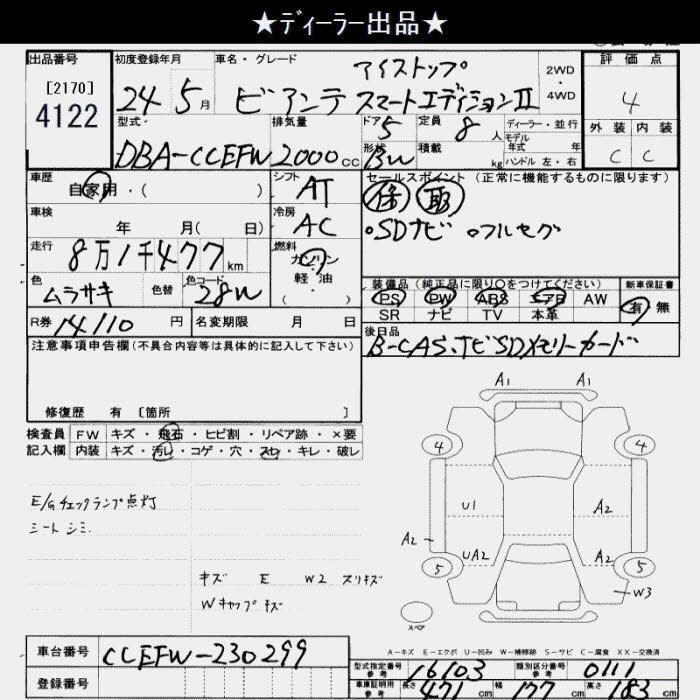 ★ディーラー出品★
出品番号
[2170]
4122
初度登録年月
24 5月
車名・グレード
アイストップ
ビアンテ スマートエディションⅡ
2WD
・
4WD
評価点
4
外装 内装
C C
型式・
DBA-CCEFW
排気量
2000cc
ドア 5
定員 8人
形状 Bw
積載 kg
ディーラー・並行
モデル年式 年
ハンドル 左・右
車歴
自家用・( )
シフト
AT
セールスポイント (正常に機能するものに限ります)
保 取
○SDナビ ○フルセグ
車検
年 月( 日)
冷房
AC
走行
8万1千477km
燃料
ガソリン
軽油
・( )
色
ムラサキ
色替
色コード
28W
装備品(純正品に限り○をつけてください)
PS PW ABS エアB AW
SR ナビ TV 本革
新車保証書
有・無
R券 14110円
名変期限 月 日
後日品
B-CAS、ナビSDメモリーカード
注意事項申告欄(不具合内容等は具体的に記入して下さい)
修復歴 有〔箇所 〕
検査員
記入欄
FW キズ・飛石・ヒビ割・リペア跡・×要
内装 キズ・汚れ・コゲ・穴・スレ・キレ・破レ
E/Gチェックランプ点灯
シートシミ.
キズ E W2 スリキズ
Wキャップキズ
A1 A1
4 4
U1 A2
A2 UA2 A2
5 5
W3
スペア
A-キズ E-エクボ U-凹み W-補修跡 S-サビ C-腐食 XX-交換済
車台番号
CCEFW-230299
登録番号
型式指定番号
参考
16103
類別区分番号
参考
0111
車庫証明用
参考
長さ 471cm 幅 177cm 高さ 183cm